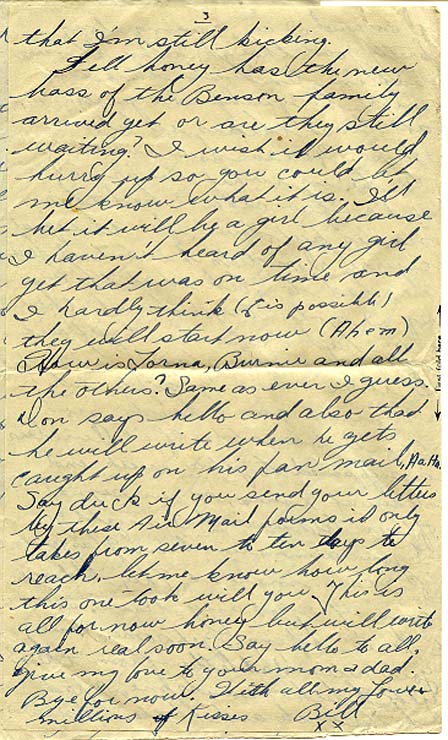 3
that I'm still kicking.
Well honey has the new
boss of the Benson family
arrived yet or are they still
waiting? I wish it would
hurry up so you could let
me know what it is. I'll
bet it will be a girl because
I haven't heard of any girl
yet that was on time and
I hardly think (it is possible)
they will start now (Ahem)
How is Lorna, Burnie and all
the others? Same as ever I guess.
Don says hello and also that
he will write when he gets
caught up on his fan mail, Ha Ha.
Say duck if you send your letters
by these Air Mail forms it only
takes from seven to ten days to
reach, let me know how long
this one took will you. This is
all for now honey but will write
again real soon. Say hello to all,
give my love to your mom & dad.
Bye for now. With all my Love &
millions of Kisses Bill
x x